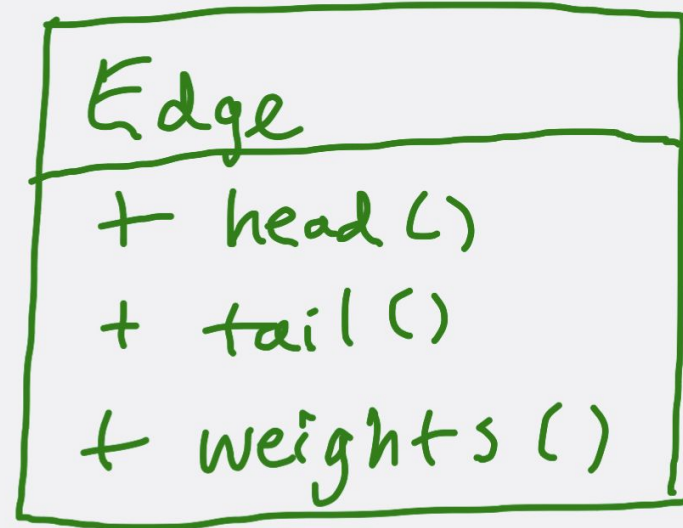 Edge
+ head()
+ tail()
+ weights()